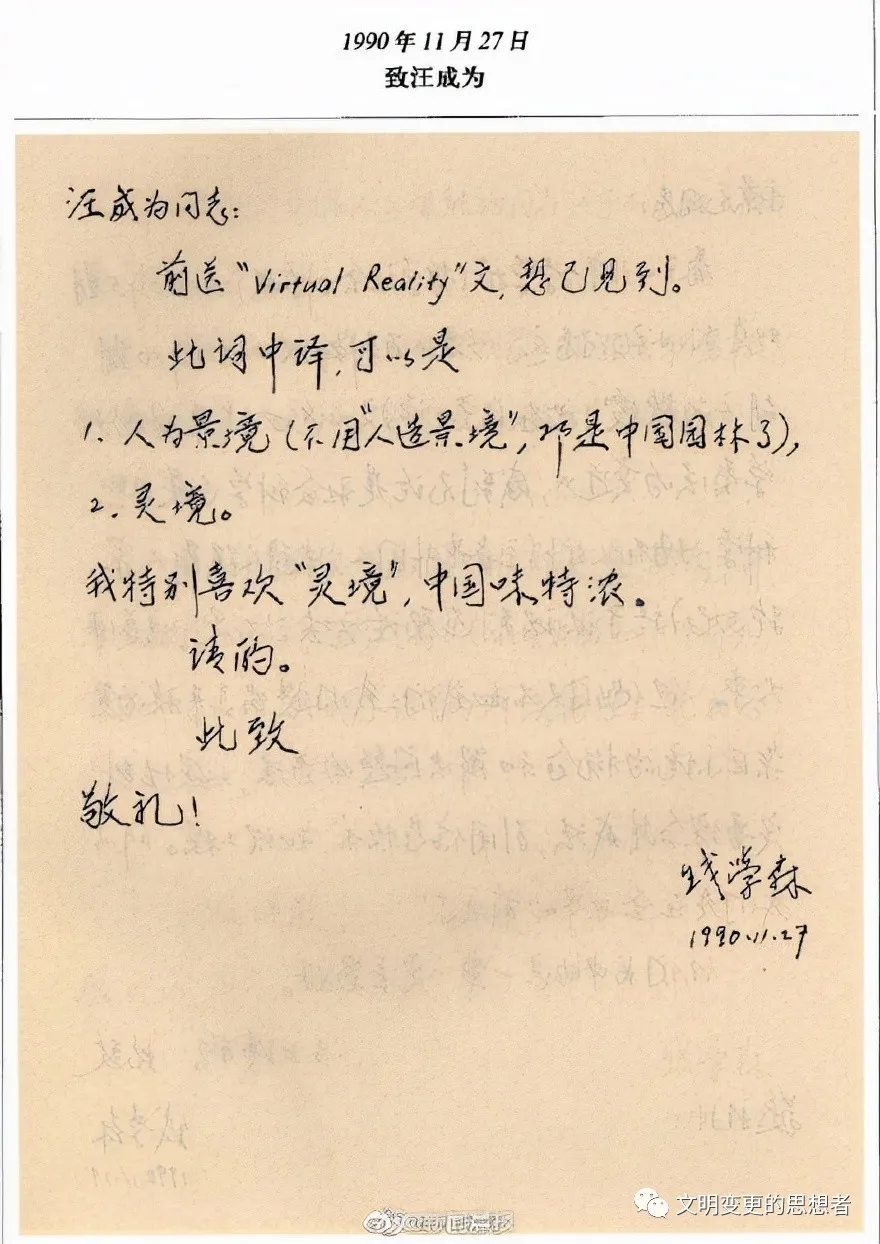 1990年11月27日
致汪成为
汪成为同志:
前送“Virtual Reality”文,想已见到。
此词中译,可以是
1. 人为景境(不用“人造景境”,那是中国园林了),
2. 灵境。
我特别喜欢“灵境”,中国味特浓。
请酌。
此致
敬礼!
钱学森
1990.11.27
文明变更的思想者